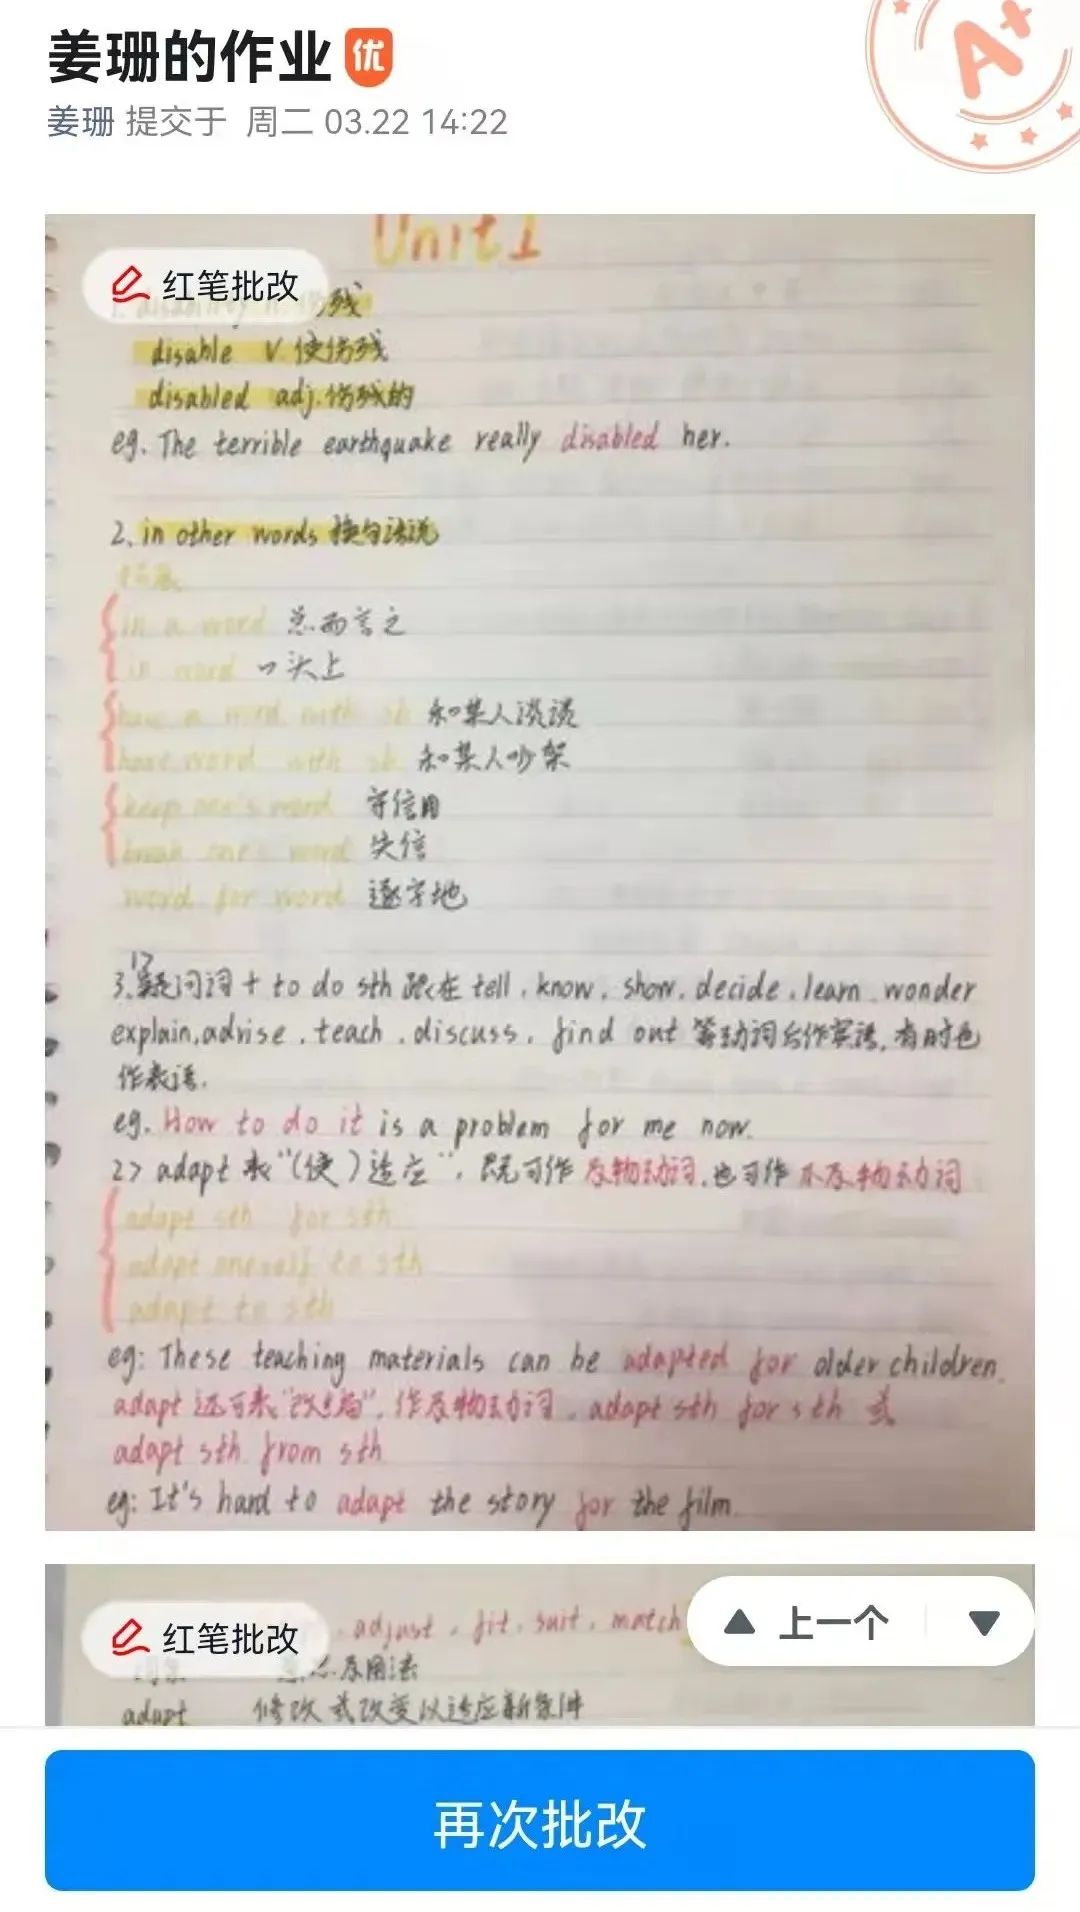 姜珊的作业 优
姜珊 提交于 周二 03.22 14:22
A+
Unit1
红笔批改
残
disable v. 使伤残
disabled adj. 伤残的
eg. The terrible earthquake really disabled her.
2. in other words 换句话说
拓展
in a word 总而言之
in word 口头上
have a word with sb 和某人谈谈
have word with sb 和某人吵架
keep one's word 守信用
break one's word 失信
word for word 逐字地
3. 1> 疑问词 + to do sth 跟在 tell, know, show, decide, learn, wonder
explain, advise, teach, discuss, find out 等动词后作宾语, 有时也
作表语.
eg. How to do it is a problem for me now.
2> adapt 表"(使)适应", 既可作及物动词, 也可作不及物动词
adapt sth for sth
adapt oneself to sth
adapt to sth
eg: These teaching materials can be adapted for older children.
adapt 还可表"改编", 作及物动词, adapt sth for sth 或
adapt sth from sth
eg: It's hard to adapt the story for the film.
红笔批改
, adjust, fit, suit, match
上一个
及用法
adapt 修改或改变以适应新条件
再次批改